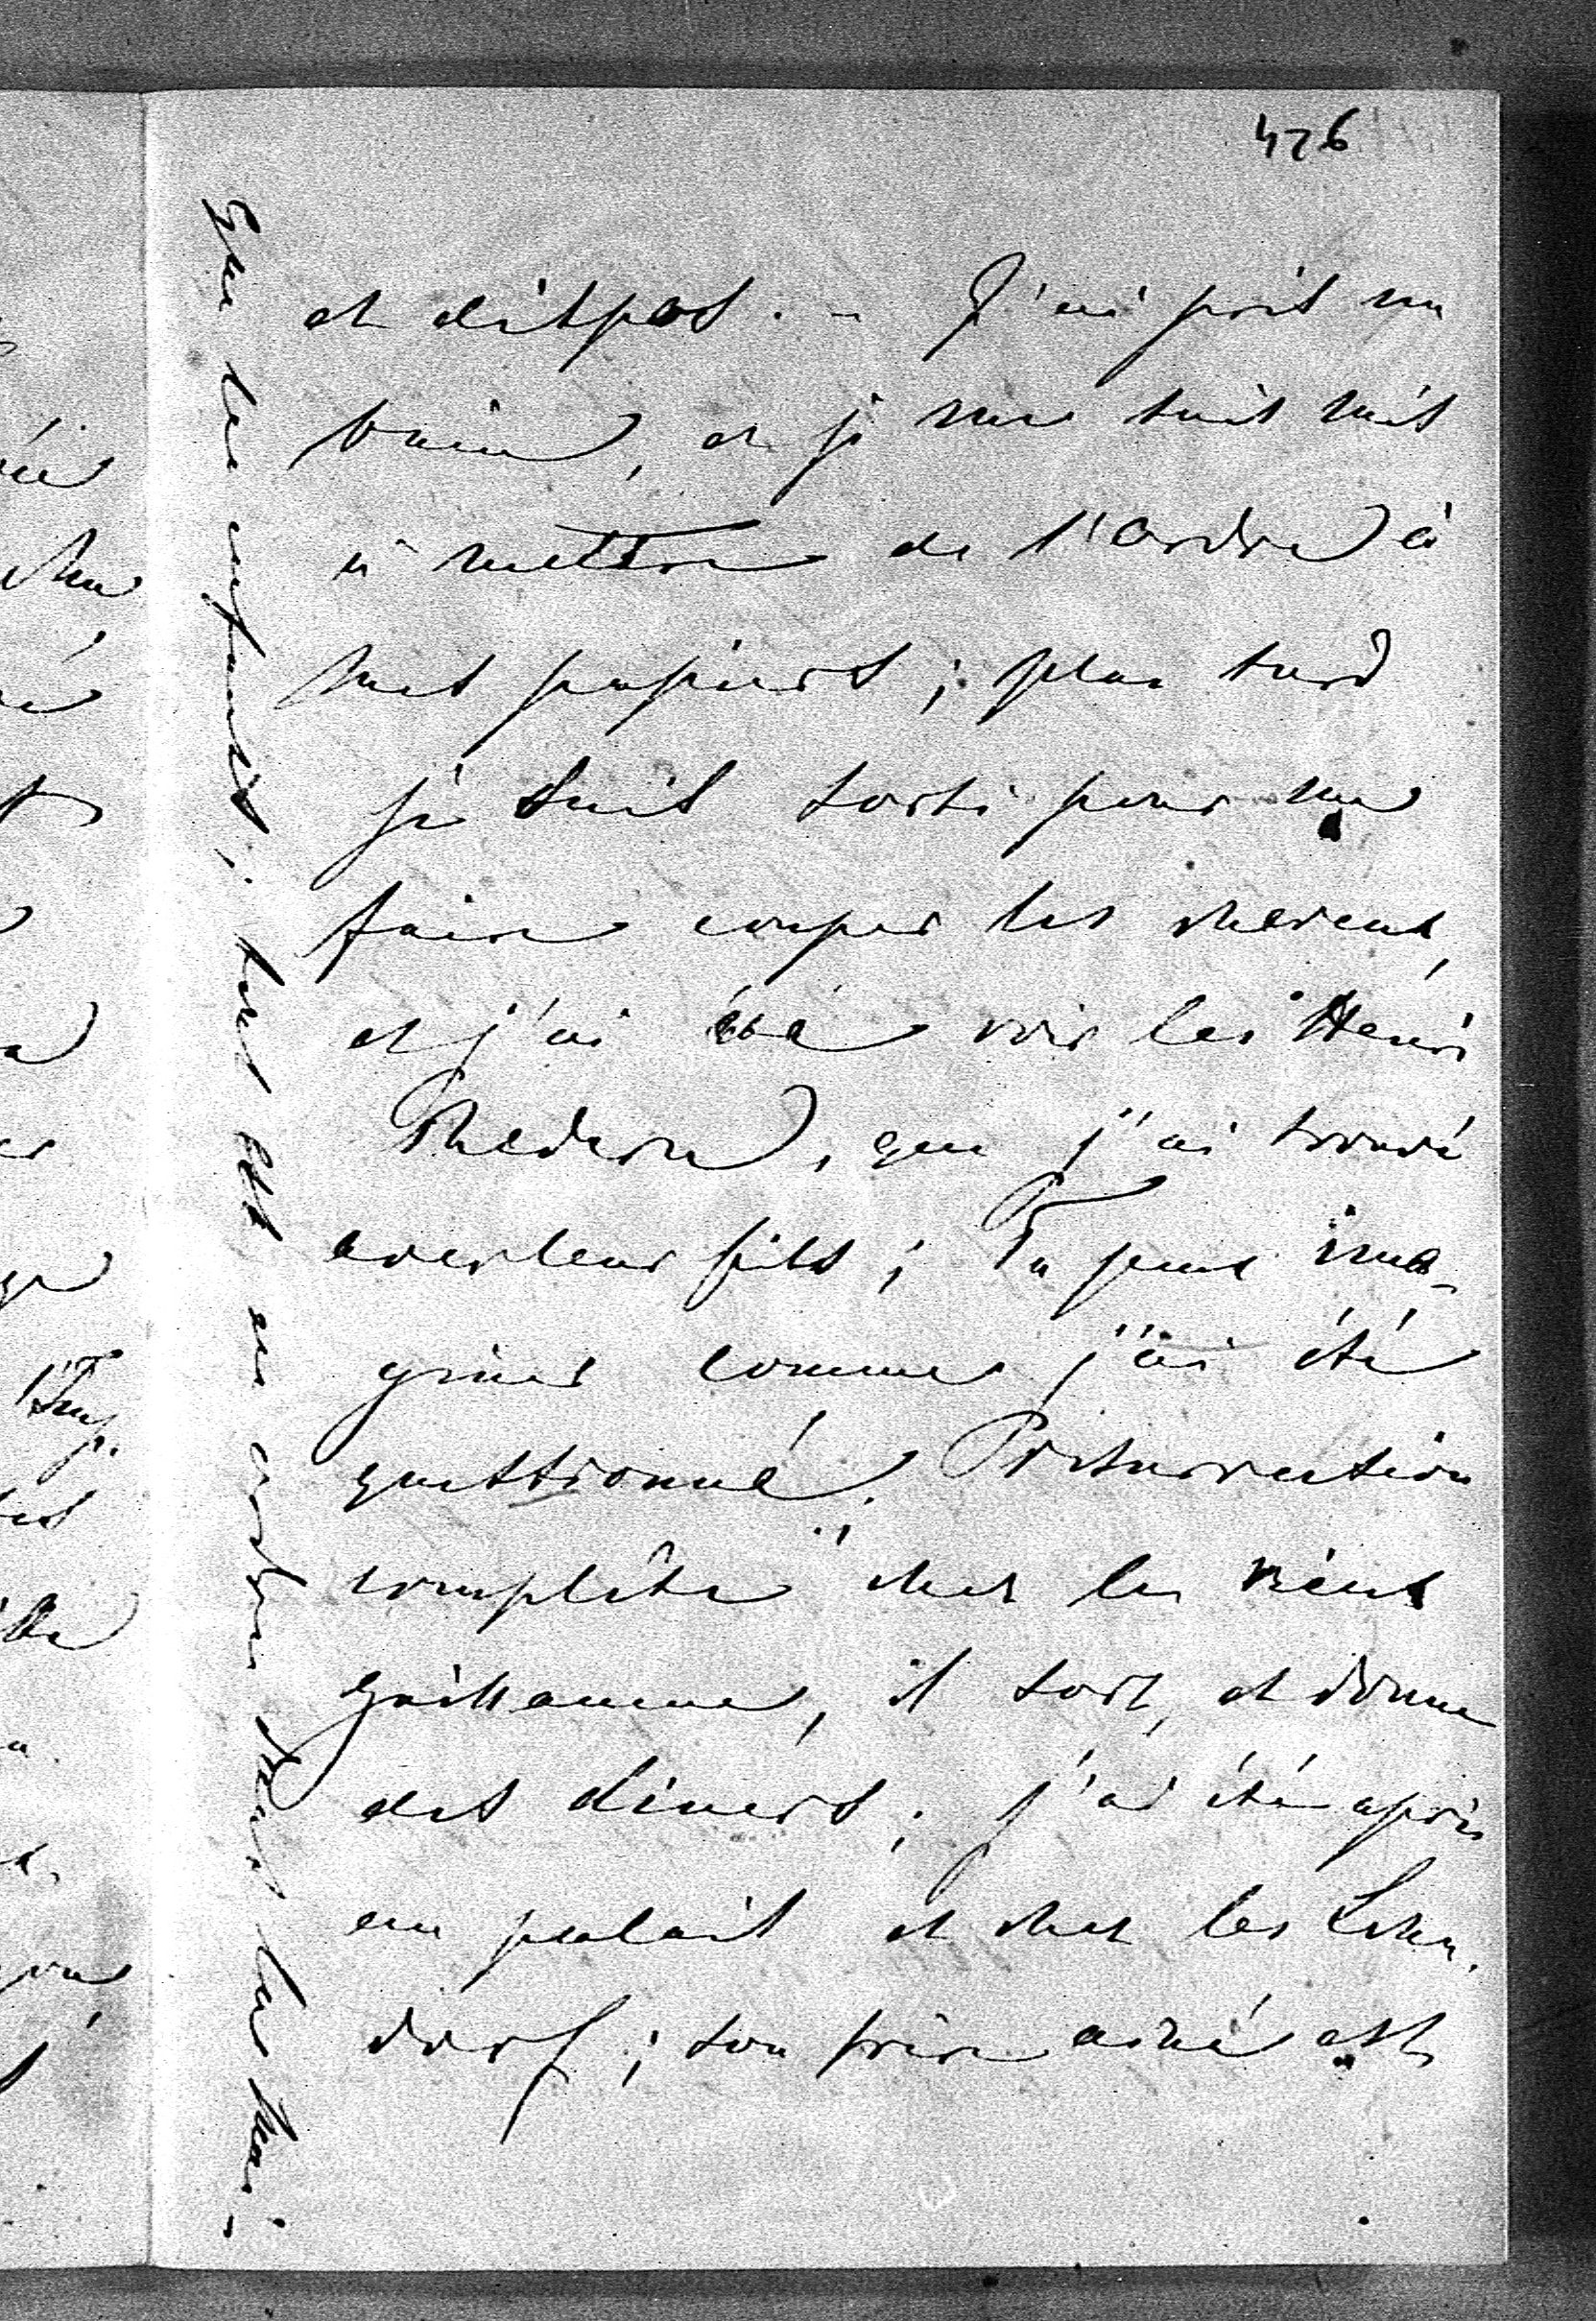 426
et dispos. – J'ai pris un
bain, et je me suis mis
à mettre de l'ordre à
mes papiers; plus tard
je suis sorti pour me
faire couper les cheveux,
et j'ai été voir les Henri
Redern, que j'ai trouvé
avec leur fils; Tu peux ima-
giner comme j'ai été
questionné. Résurrection
complète chez les vieux
Guillaume, il sort, et donne
des diners; j'ai été après
au palais et chez les Lehn-
dorf; son frère ainé est
que les enfants; tout est en ordre